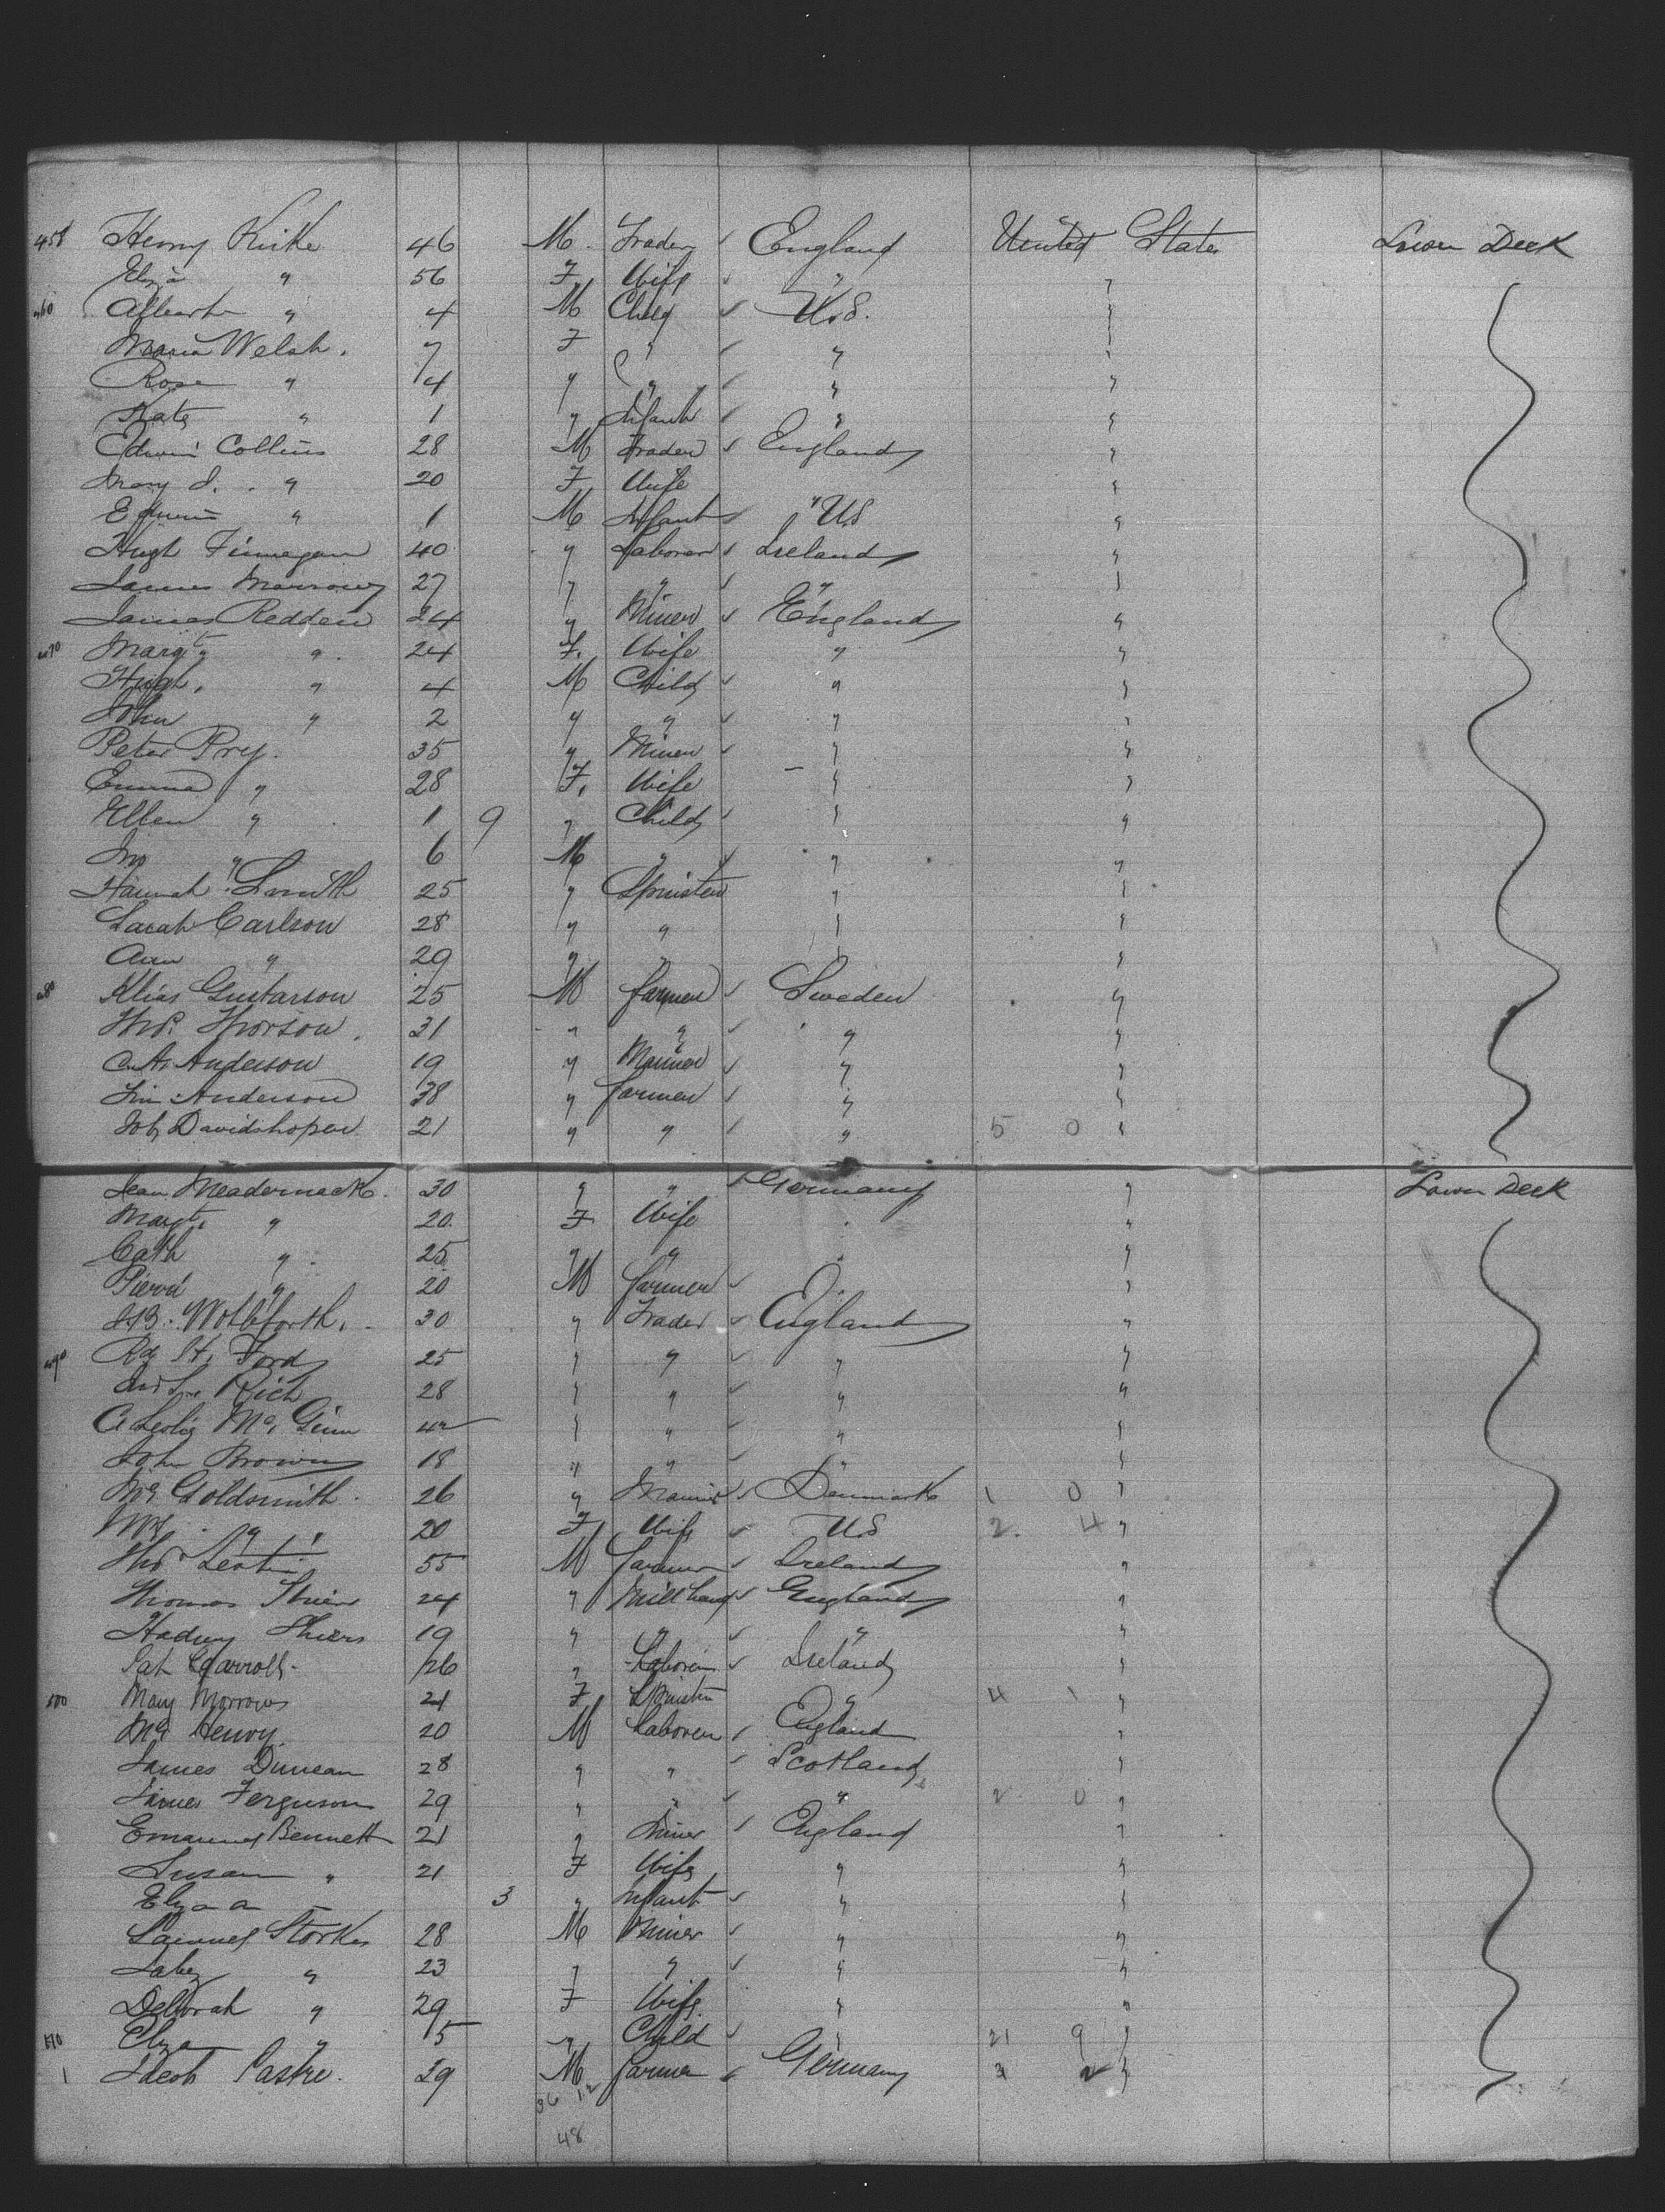 458 Henry Kirke 46 M. Trader ✓ England United States Lower Deck
Eliza " 56 F. Wife ✓ " "
460 " 4 M Child ✓ U.S. "
Maria Welsh. 7 F " ✓ " "
Rose " 4 " " ✓ " "
Kate " 1 " Infant ✓ " "
Edwin Collins 28 M Trader ✓ England "
Mary J. " 20 F. Wife "
Edwin " 1 M Infant ✓ " US "
Hugh Finnegan 40 " Laborer ✓ Ireland "
James Morrow 27 " " ✓ " "
James Redden 24 " Miner ✓ England "
470 Margt " 24 F. Wife " "
Hugh. " 4 M Child ✓ " "
John " 2 " " ✓ " "
Peter Pry. 35 " Miner ✓ " "
Emma " 28 F. Wife " "
Ellen " 1 9 " Child ✓ " "
Jno " 6 M " ✓ " "
Hannah Smith 25 " Spinster " "
Sarah Carlson 28 " " " "
Ann " 29 " " " "
480 Elias Gustarson 25 M farmer ✓ Sweden "
Thos. Thorson. 31 " " ✓ " "
C. A. Anderson 19 " ✓ " "
Anderson 38 " farmer ✓ " "
Joh Davidshopen 21 " " ✓ " 5 0 "
Jean Meadernack. 30 " " ✓ Germany " Lower Deck
Margt. " 20 F Wife "
Cath " 25 " " "
Pierre " 20 M farmer ✓ "
30 " Trader ✓ England "
490 Ford 25 " " ✓ " "
Rich 28 " " ✓ " "
Mc Ginn 42 " " ✓ " "
John Brown 18 " " ✓ " "
Mr Goldsmith. 26 " ✓ Denmark 1 0 "
Mrs " 20 F Wife ✓ US 2 4 "
Thos 55 M farmer ✓ Ireland "
Thomas 24 " Mill hand ✓ England "
Shiers 19 " " ✓ " "
Pat Carroll 26 " Laborer ✓ Ireland "
500 Mary Morrows 21 F Spinster " 4 1 "
Mr Henry. 20 M Laborer ✓ England "
James Duncan 28 " " ✓ Scotland "
James Ferguson 29 " " ✓ " 2 0 "
Emanuel Bennett 21 " Miner ✓ England "
Susan " 21 F Wife " "
Eliza a 3 " Infant ✓ " "
Samuel Storkes 28 M Miner ✓ " "
Jabez " 23 " " ✓ " "
Deborah " 29 F Wife. " "
510 Eliza " 5 " Child ✓ " 21 9 "
1 Jacob Pastre. 29 M farmer ✓ Germany 3 2 "
36 12
48